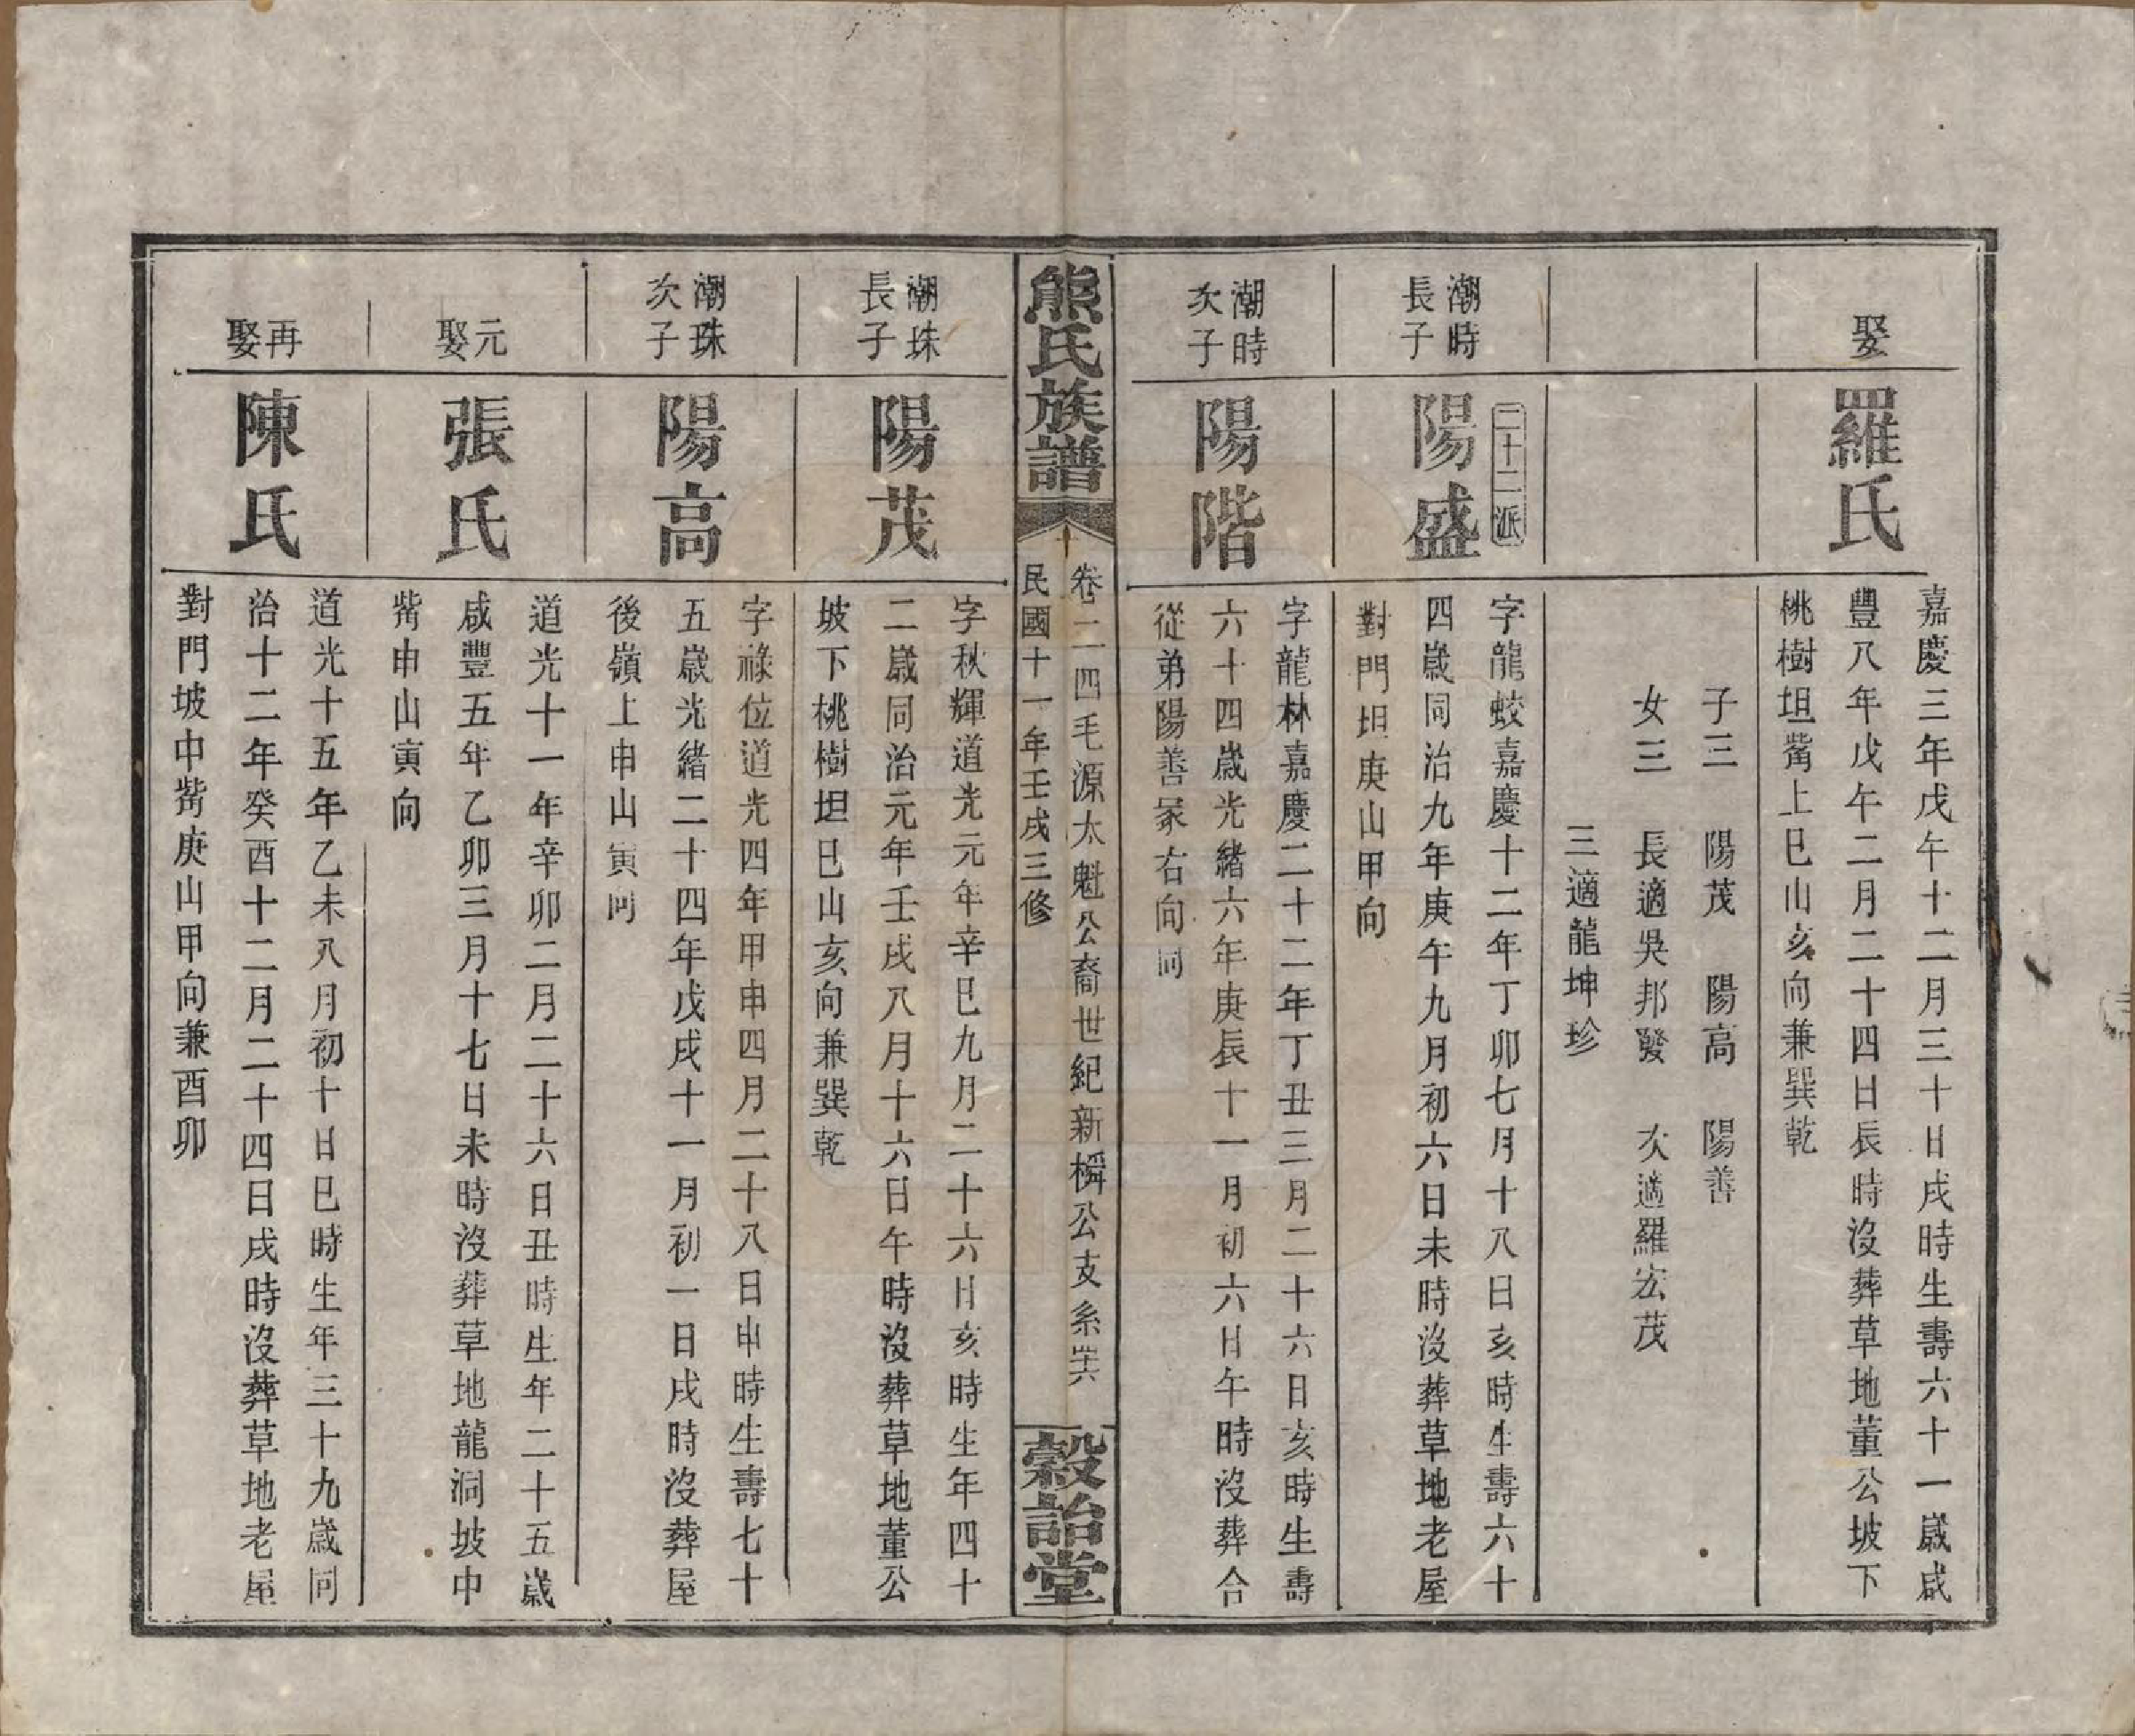 娶
羅氏
嘉慶三年戊午十二月三十日戌時生壽六十一歲咸
豐八年戊午二月二十四日辰時沒葬草地董公坡下
桃樹坦觜上巳山亥向兼巽乾
子三 陽茂 陽高 陽善
女三 長適吳邦發 次適羅宏茂
三適龍坤珍
潮時
長子
二十二派
陽盛
字龍蛟嘉慶十二年丁卯七月十八日亥時生壽六十
四歲同治九年庚午九月初六日未時沒葬草地老屋
對門坦庚山甲向
潮時
次子
陽階
字龍林嘉慶二十二年丁丑三月二十六日亥時生壽
六十四歲光緒六年庚辰十一月初六日午時沒葬合
從弟陽善冢右向同
熊氏族譜
卷二四毛源太魁公裔世紀新橉公支系卌六
民國十一年壬戌三修
穀詒堂
潮珠
長子
陽茂
字秋輝道光元年辛巳九月二十六日亥時生年四十
二歲同治元年壬戌八月十六日午時沒葬草地董公
坡下桃樹坦巳山亥向兼巽乾
潮珠
次子
陽高
字祿位道光四年甲申四月二十八日申時生壽七十
五歲光緒二十四年戊戌十一月初一日戌時沒葬屋
後嶺上申山寅向
元娶
張氏
道光十一年辛卯二月二十六日丑時生年二十五歲
咸豐五年乙卯三月十七日未時沒葬草地龍洞坡中
觜申山寅向
再娶
陳氏
道光十五年乙未八月初十日巳時生年三十九歲同
治十二年癸酉十二月二十四日戌時沒葬草地老屋
對門坡中觜庚山甲向兼酉卯